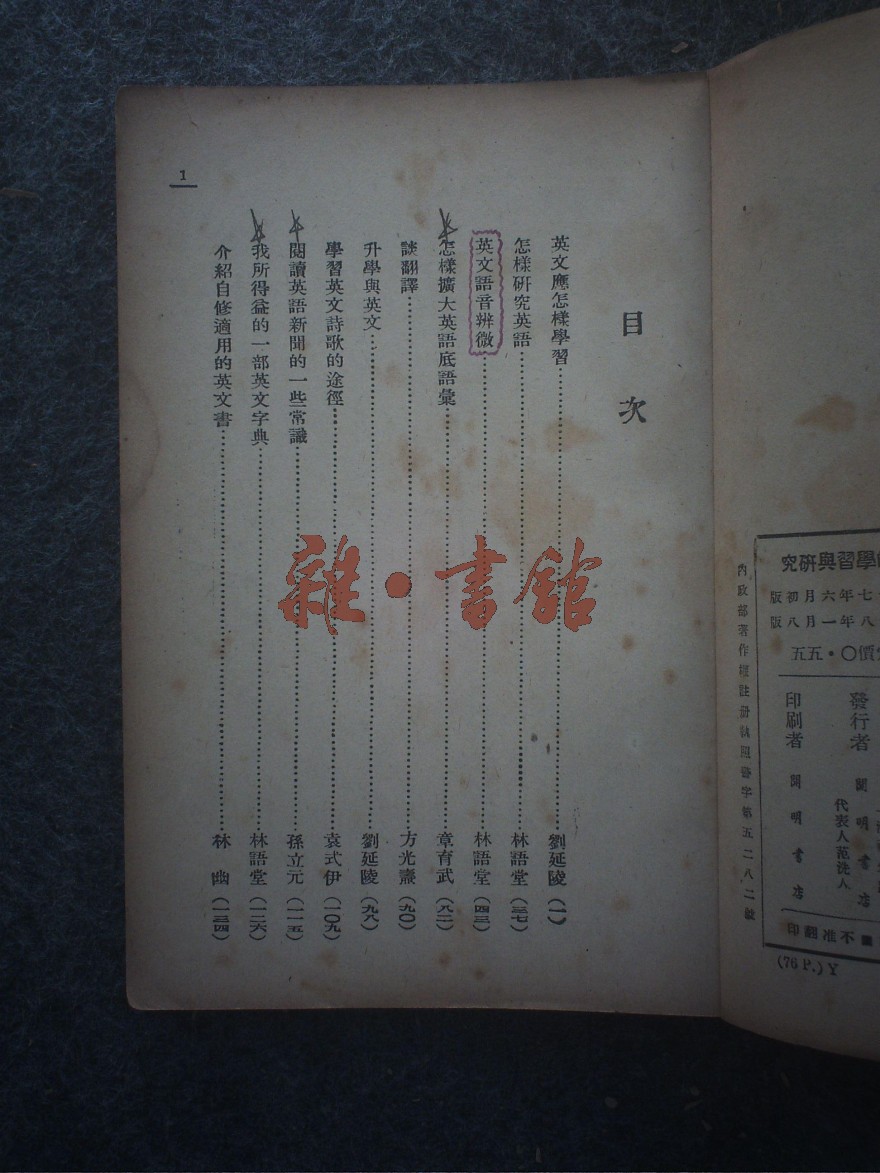 目次
英文應怎樣學習……劉延陵(一)
怎樣研究英語……林語堂(三七)
英文語音辨微……林語堂(四三)
怎樣擴大英語底語彙……章育武(八二)
談翻譯……方光燾(九〇)
升學與英文……劉延陵(九八)
學習英文詩歌的途徑……袁式伊(一〇九)
閱讀英語新聞的一些常識……孫立元(一一五)
我所得益的一部英文字典……林語堂(一二六)
介紹自修適用的英文書……林幽(一三四)
1
雜·書館
學習與研究
七年六月初版
八年一月八版
價〇·五五
發行者 開明書店
代表人范洗人
印刷者 開明書店
不准翻印
(76 P.) Y
內政部著作權註册執照警字第五二八二號